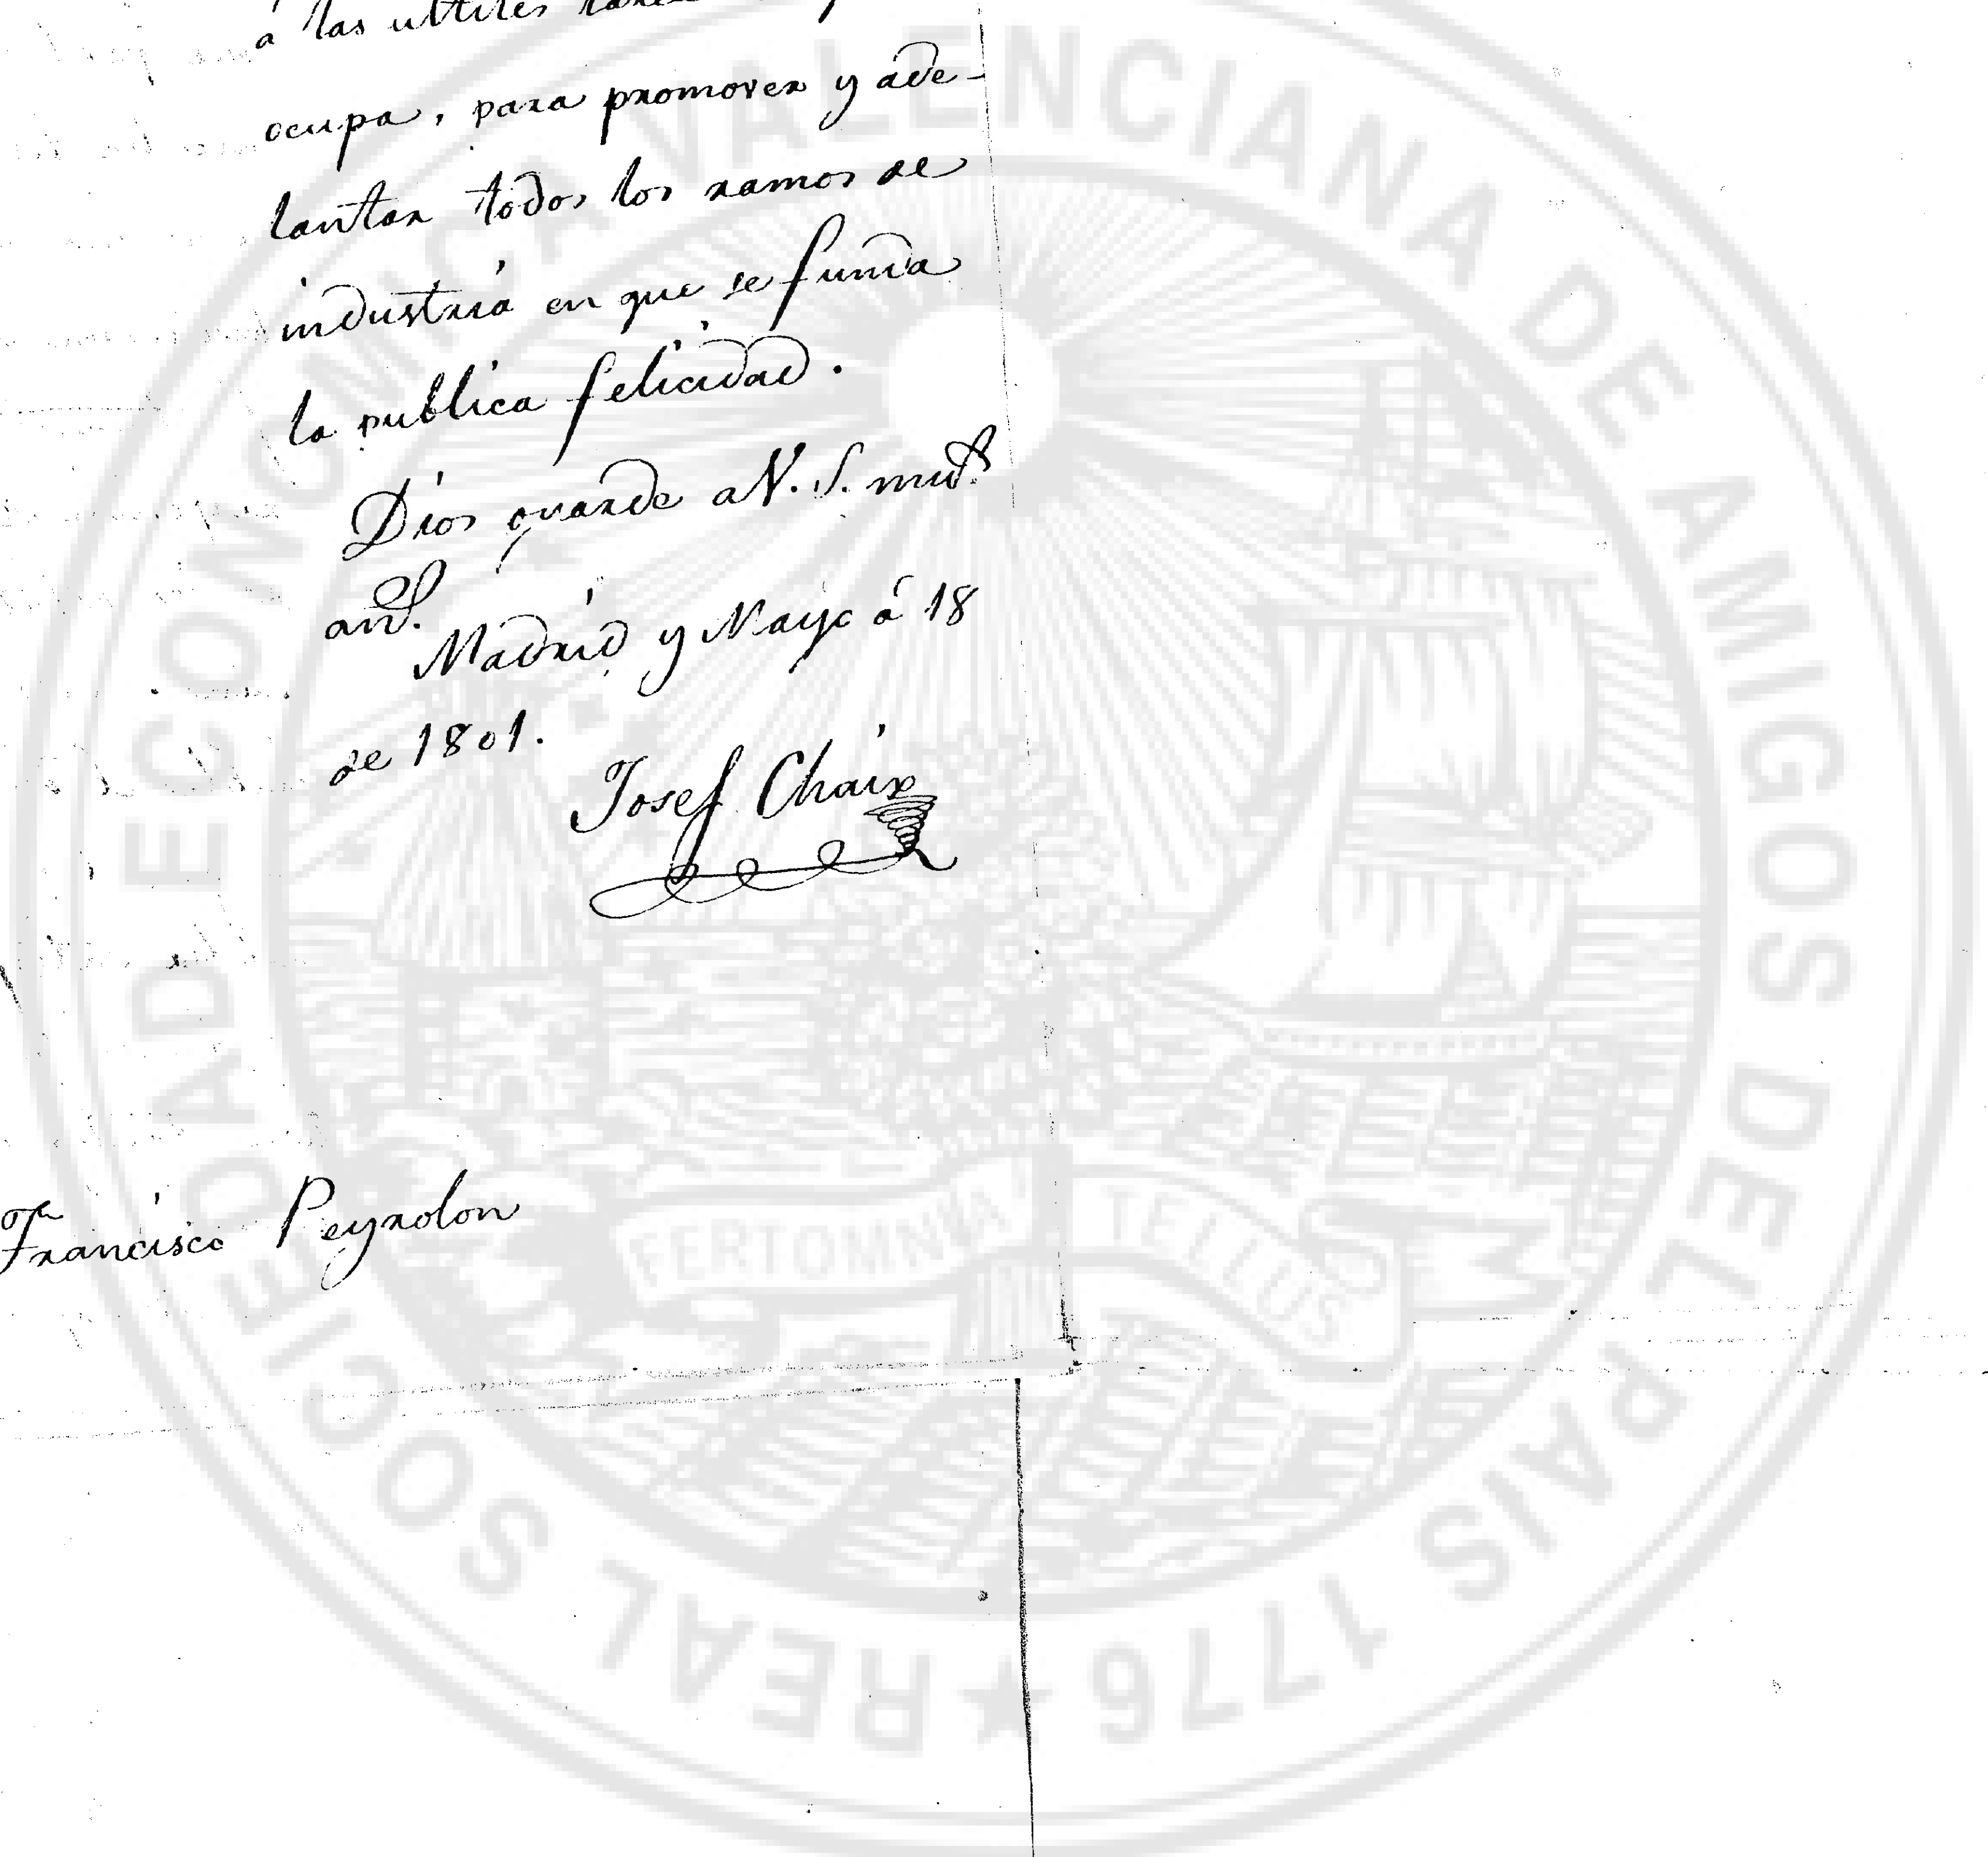 á las utiles
ocupa, para promover y ade-
lantar todos los ramos de
industria en que se funda
la publica felicidad.
Dios guarde a V. S. mu.s
an.s
Madrid y Mayo á 18
de 1801.
Josef Chaix
Francisco Peyrolon
REAL SOCIEDAD ECONOMICA VALENCIANA DE AMIGOS DEL PAIS 1776